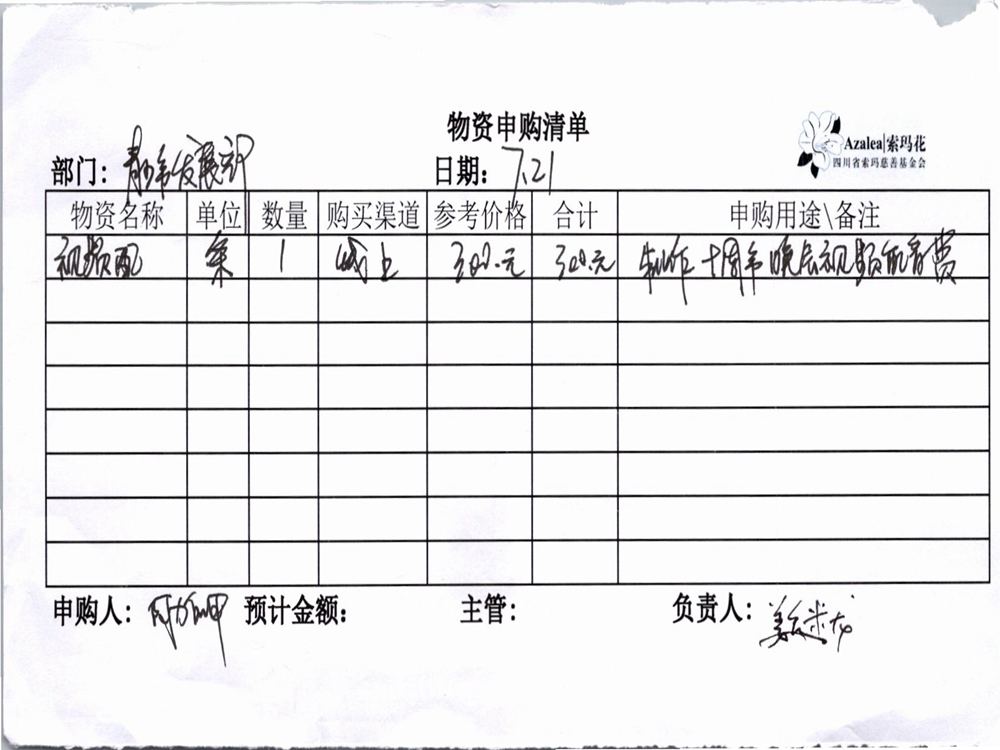 物资申购清单
Azalea|索玛花
四川省索玛慈善基金会
部门： 发展部 日期：7.21
物资名称 单位 数量 购买渠道 参考价格 合计 申购用途\备注
视频配 条 1 线上 300.元 300.元 制作十周年晚会视频配音费
申购人： 预计金额： 主管： 负责人：